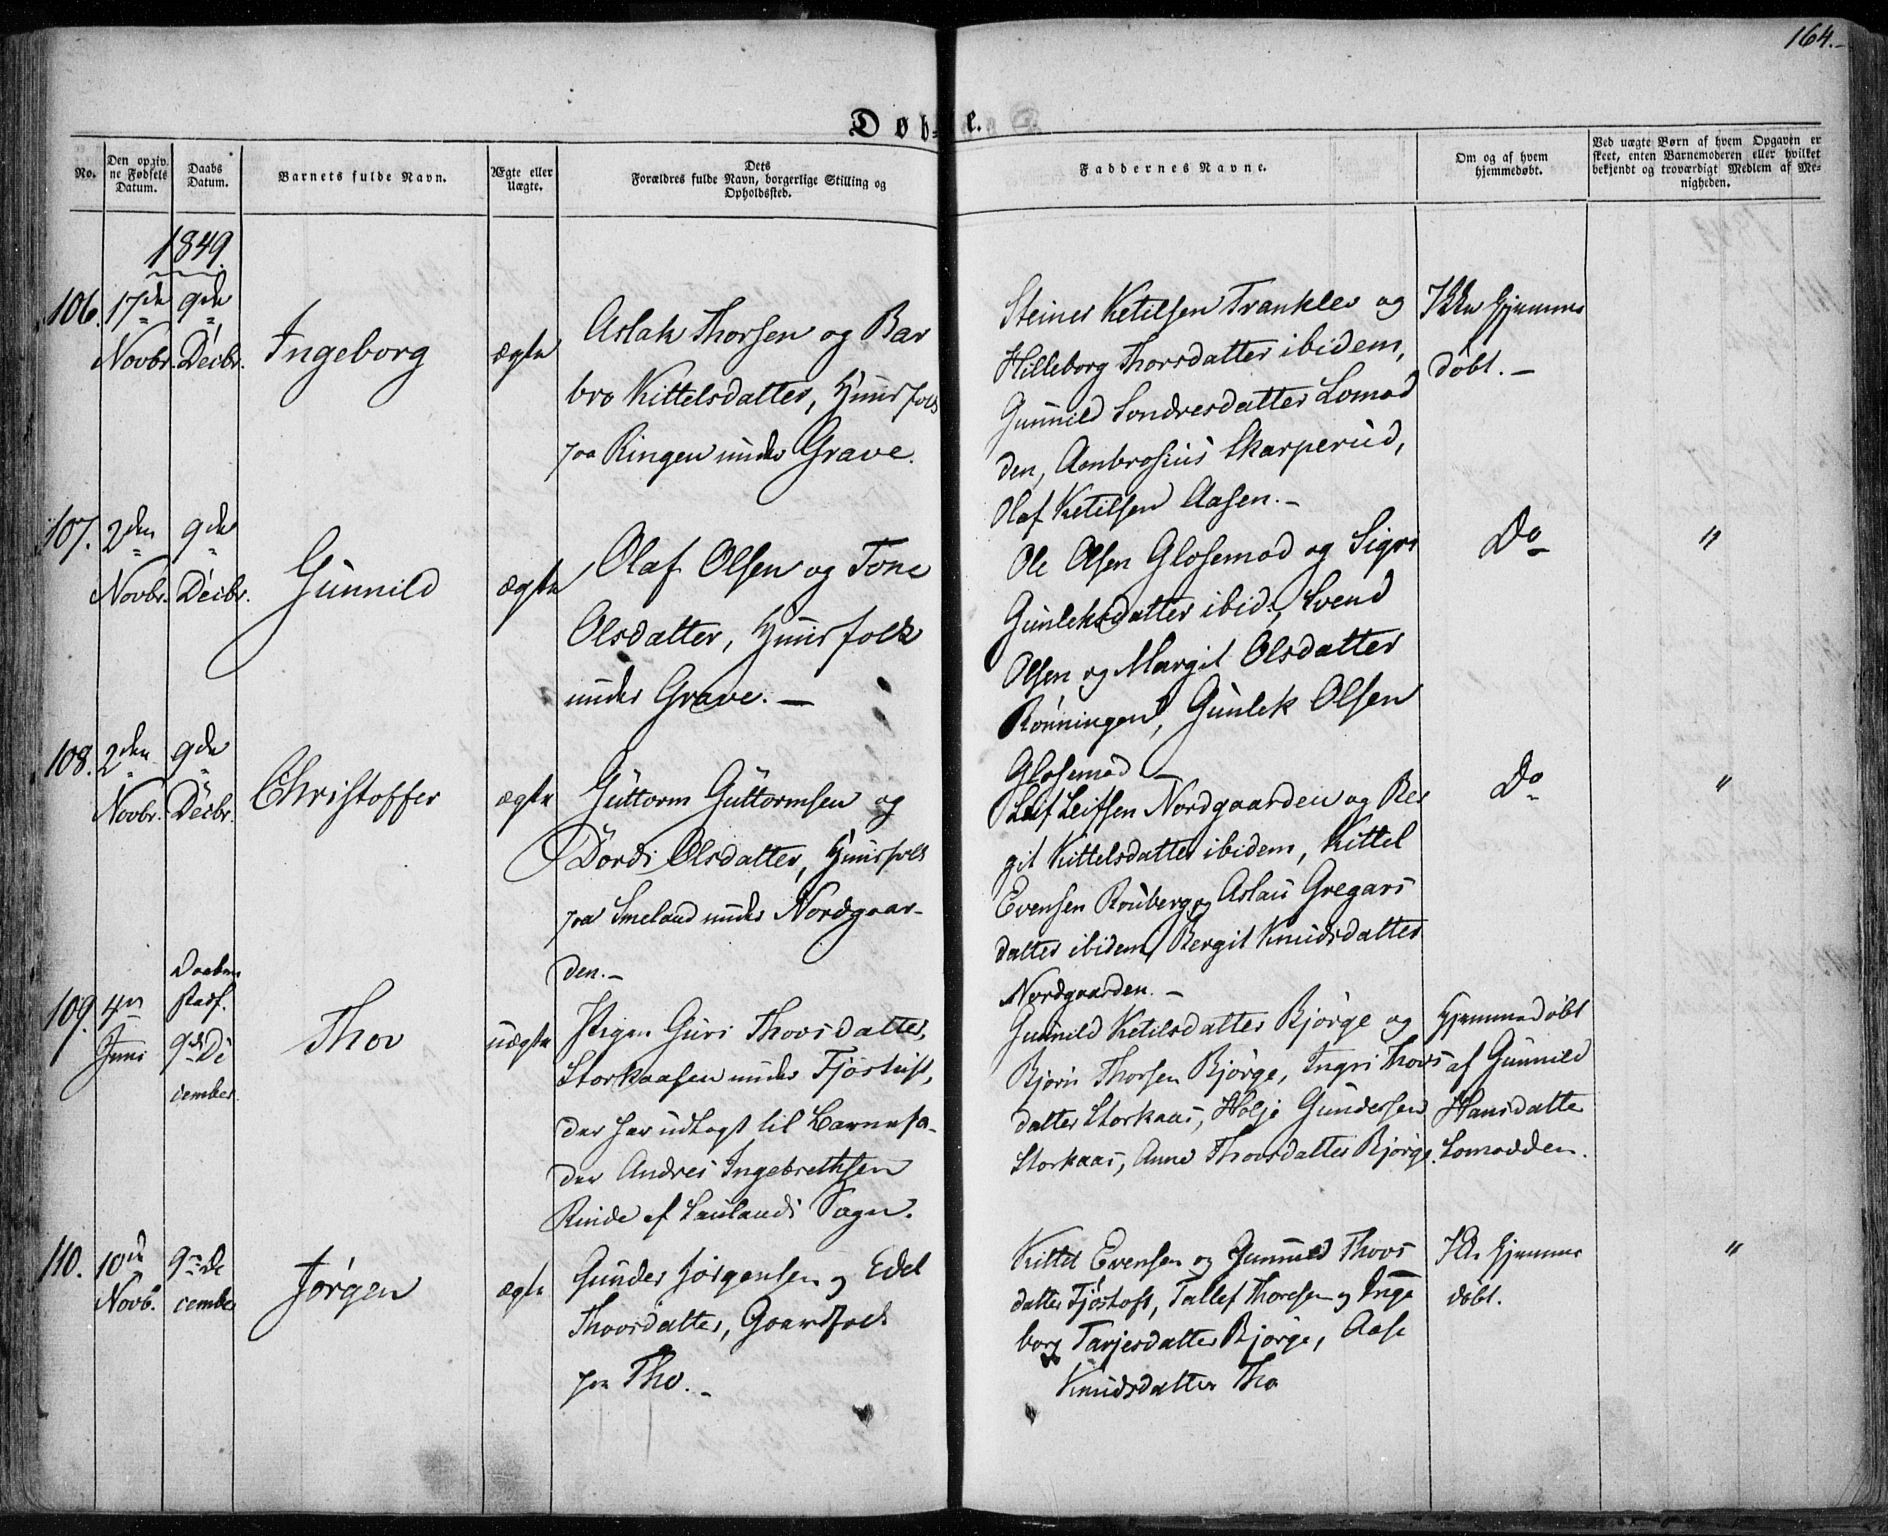 164.
Døbte.
No.
Den opgivne Fødsels Datum.
Daabs Datum.
Barnets fulde Navn.
Ægte eller Uægte.
Dets
Forældres fulde Navn, borgerlige Stilling og
Opholdssted.
Faddernes Navne.
Om og af hvem
hjemmedøbt.
Ved uægte Børn af hvem Opgaven er
skeet, enten Barnemoderen eller hvilket
bekjendt og troværdigt Medlem af Me-
nigheden.
1849.
106.
17de
Novbr.
9de
Decbr.
Ingeborg
ægte
Aslak Thorsen og Bar
bro Kittelsdatter, Huusfolk
paa Ringen under Grave.
Steiner Ketilsen Tranklev og
Hilleborg Thorsdatter ibidem,
Gunnild Sondresdatter Lomod
den, Ambrosius Skarperud,
Olaf Ketilsen Aasen.-
Ikke hjemme
døbt.-
107.
2den
Novbr.
9de
Decbr.
Gunnild
ægte
Olaf Olsen og Tone
Olsdatter, Huusfolk
under Grave.-
Ole Olsen Glosemod og Sigri
Gunleksdatter ibid., Svend
Olsen og Margit Olsdatter
Rønningen, Gunlek Olsen
Glosemod -
Do
"
108.
2den
Novbr.
9de
Decbr.
Christoffer
ægte
Guttorm Guttormsen og
Dordi Olsdatter, Huusfolk
paa Smeland under Nordgaar-
den.-
Leif Leifsen Nordgaarden og Ber
git Kittelsdatter ibidem, Kittel
Evensen Rouberg og Aslau Gregars
datter ibidem, Bergit Knudsdatter
Nordgaarden.-
Do
"
109.
4de
Juni
Daaben
stadf.
9de De
cember.
Thov
uægte
Pigen Guri Thovsdatter,
Storkaasen under Tjøstuft,
der har udlagt til Barnefa-
der Andres Ingebrethsen
Rinde af Laulands Sogn.
Gunnild Ketilsdatter Bjørge og
Bjørn Thorsen Bjørge, Ingri Thovs
datter Storkaas, Holje Gundersen
Storkaas, Anne Thovsdatter Bjørge.
Hjemmedøbt
af Gunnild
Hansdatter
Lomodden.
110.
10de
Novb.
9de De
cember
Jørgen
ægte
Gunder Jørgensen og Edel
Thovsdatter, Gaardfolk
paa Tho.-
Kittel Evensen og Gunnild Thovs
datter Tjøstoft, Tallef Thoresen og Inge
borg Tarjesdatter Bjørge, Aase
Knudsdatter Tho
Ikke hjemme
døbt.
"